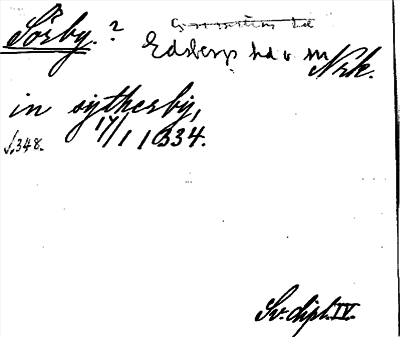 Sörby. ?
Edsbergs hd o. m
Nrk.
in sytherby,
17/1 1334.
s. 348.
Sv. dipl. IV.